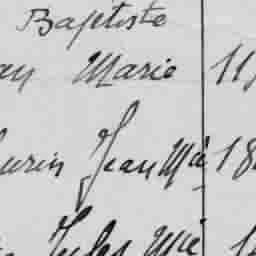 Baptiste
Marie 11
Jean Mie 18
Jules Mie